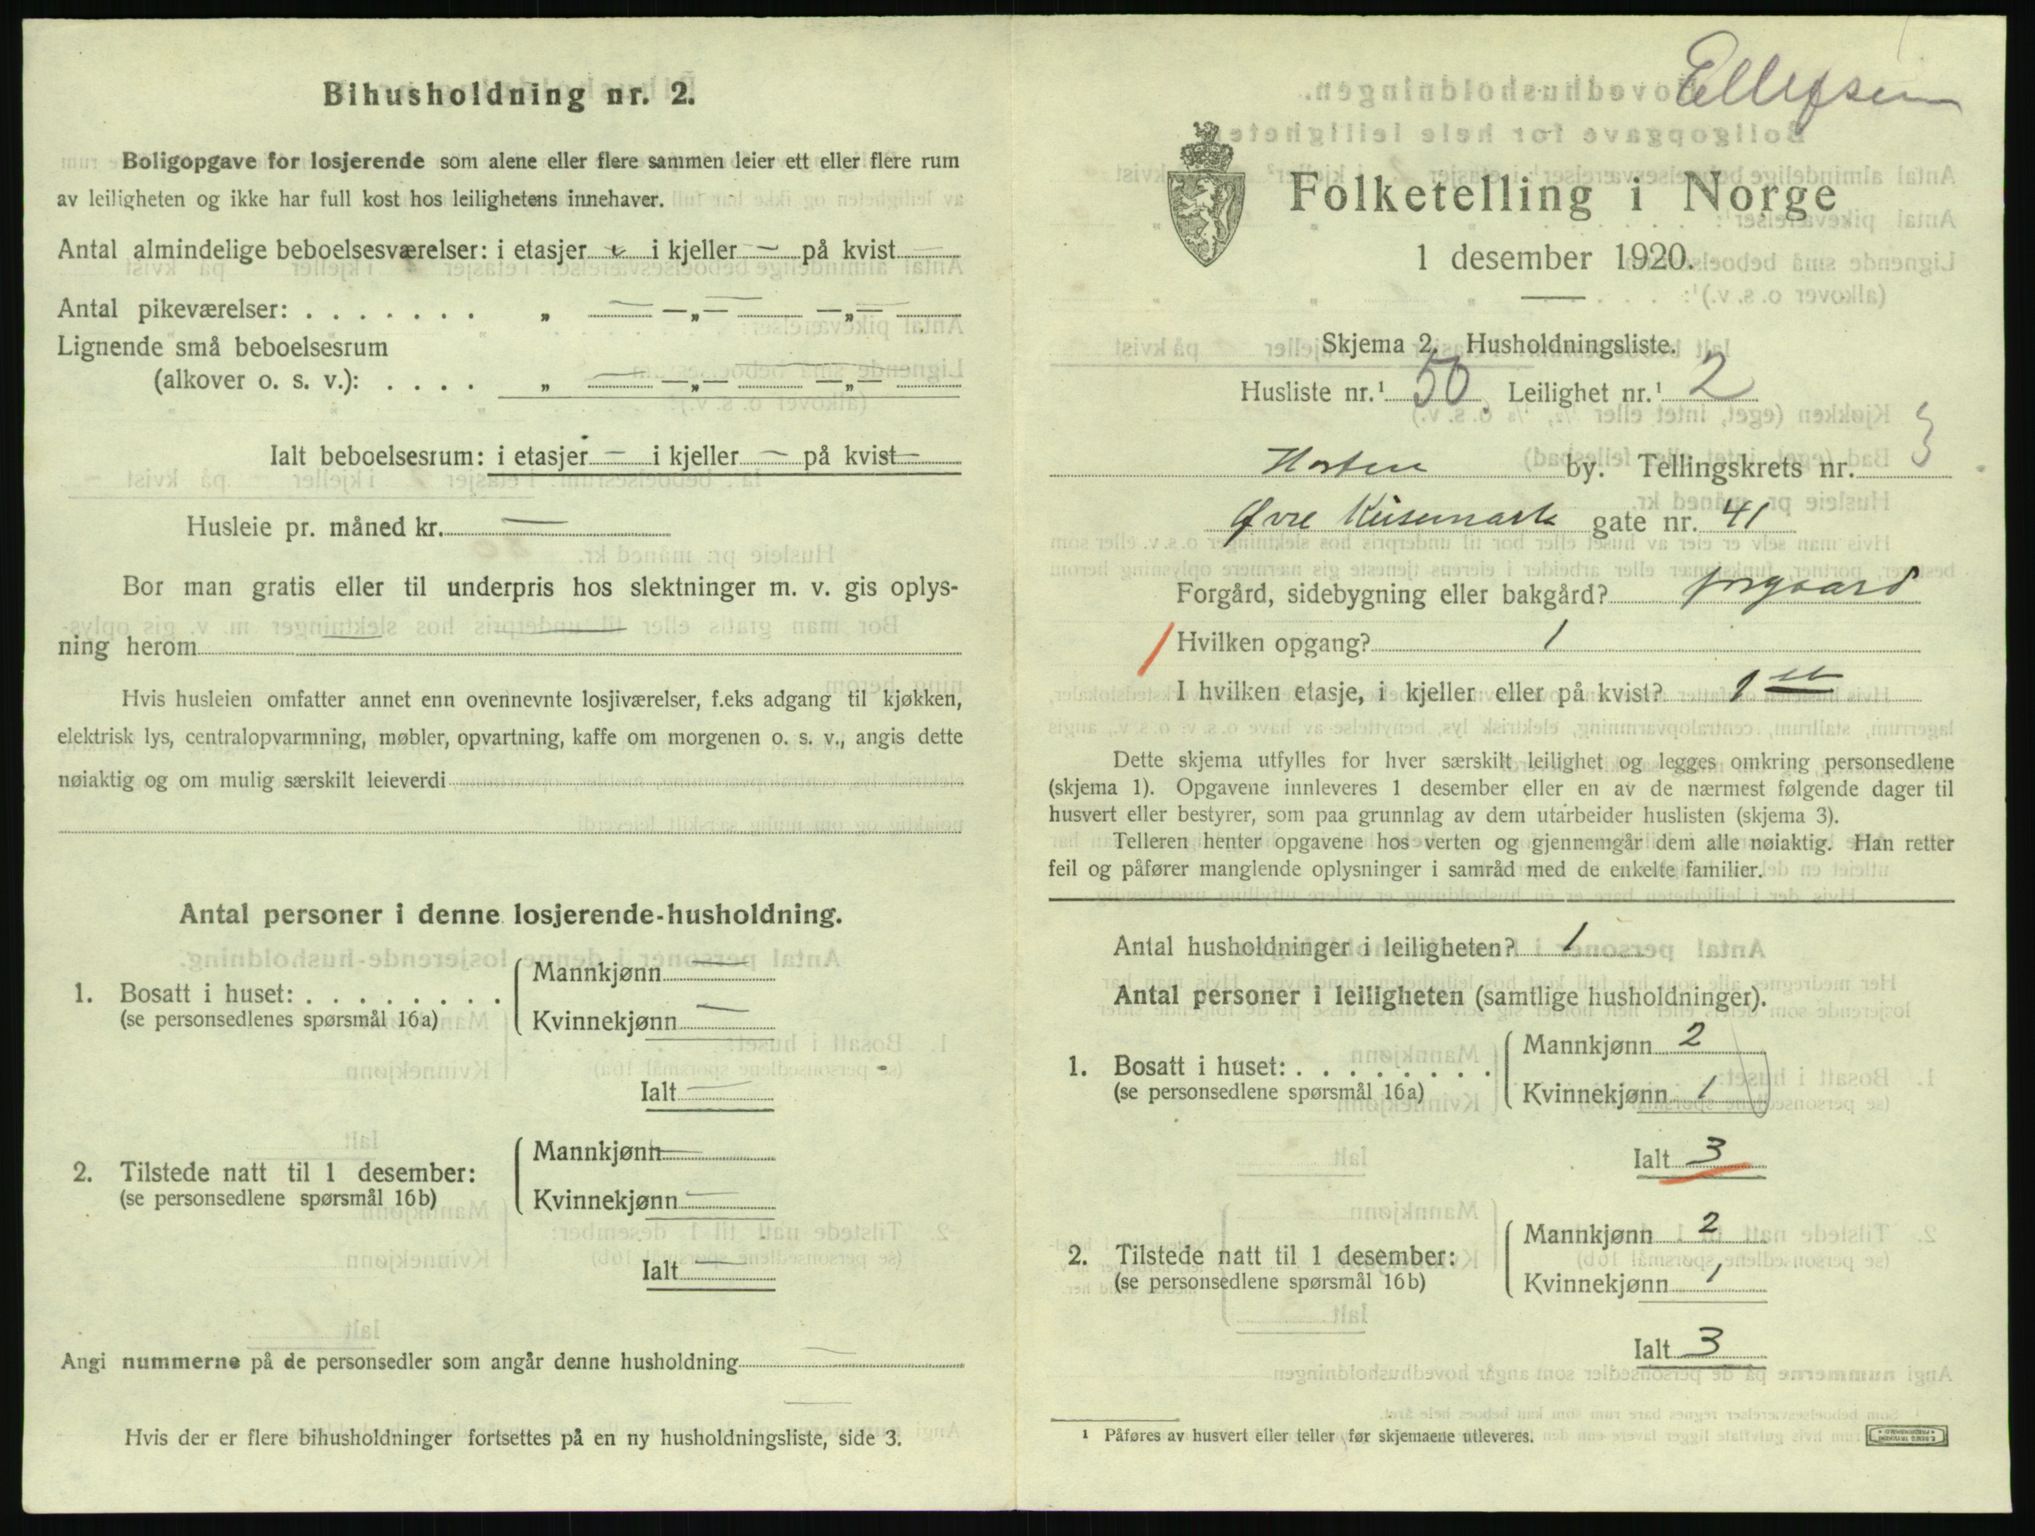 Bihusholdning nr. 2.
Boligopgave for losjerende som alene eller flere sammen leier ett eller flere rum
av leiligheten og ikke har full kost hos leilighetens innehaver.
Antal almindelige beboelsesværelser: i etasjer — i kjeller — på kvist —
Antal pikeværelser: . . . . . . . „ — —„— — —„—
Lignende små beboelsesrum
(alkover o. s. v.): . . . . „ — —„— — —„—
Ialt beboelsesrum: i etasjer — i kjeller — på kvist —
Husleie pr. måned kr. —
Bor man gratis eller til underpris hos slektninger m. v. gis oplys-
ning herom — —
Hvis husleien omfatter annet enn ovennevnte losjiværelser, f.eks adgang til kjøkken,
elektrisk lys, centralopvarmning, møbler, opvartning, kaffe om morgenen o. s. v., angis dette
nøiaktig og om mulig særskilt leieverdi
Antal personer i denne losjerende-husholdning.
1. Bosatt i huset: . . . . . . . .
(se personsedlenes spørsmål 16a)
Mannkjønn —
Kvinnekjønn —
Ialt —
2. Tilstede natt til 1 desember:
(se personsedlene spørsmål 16b)
Mannkjønn —
Kvinnekjønn —
Ialt —
Angi nummerne på de personsedler som angår denne husholdning —
Hvis der er flere bihusholdninger fortsettes på en ny husholdningsliste, side 3.
Ellefsen
Folketelling i Norge
1 desember 1920.
Skjema 2. Husholdningsliste.
Husliste nr.¹ 50. Leilighet nr.¹ 2
Horten by. Tellingskrets nr. 3
Øvre Keisemark gate nr. 41
Forgård, sidebygning eller bakgård? forgaard
Hvilken opgang? 1
I hvilken etasje, i kjeller eller på kvist? 1 ste
Dette skjema utfylles for hver særskilt leilighet og legges omkring personsedlene
(skjema 1). Opgavene innleveres 1 desember eller en av de nærmest følgende dager til
husvert eller bestyrer, som paa grunnlag av dem utarbeider huslisten (skjema 3).
Telleren henter opgavene hos verten og gjennemgår dem alle nøiaktig. Han retter
feil og påfører manglende oplysninger i samråd med de enkelte familier.
Antal husholdninger i leiligheten? 1
Antal personer i leiligheten (samtlige husholdninger).
1. Bosatt i huset: . . . . . . . .
(se personsedlene spørsmål 16a)
Mannkjønn 2
Kvinnekjønn 1
Ialt 3
2. Tilstede natt til 1 desember:
(se personsedlene spørsmål 16b)
Mannkjønn 2
Kvinnekjønn 1
Ialt 3
¹ Påføres av husvert eller teller før skjemaene utleveres.